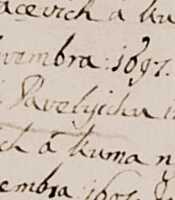 acevich à ku
vembra: 1697.
Pavelyichu n
ch à kuma n
embra: 1697.